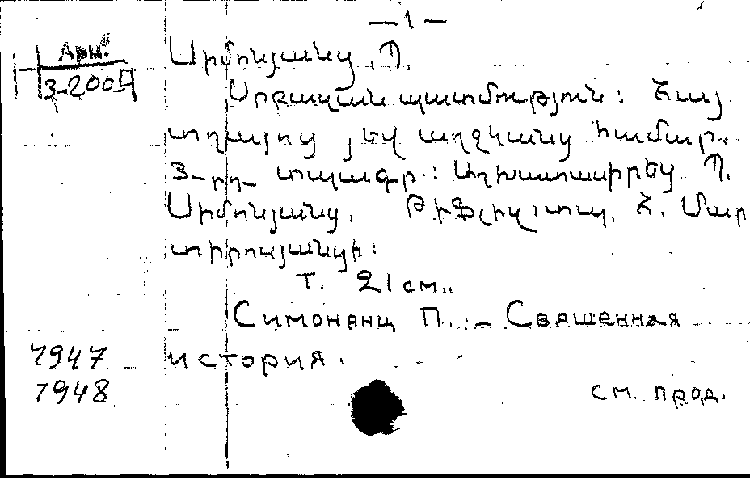 — 1 —
Арм.
3-2004
Սիմոնյանց Պ.
Սրբական պատմություն: Հայ
տղայոց յեվ աղջկանց համար.
3-րդ տպագր: Աշխատասիրեց Պ.
Սիմոնյանց. Թիֆլիս, տպ. Հ. Մար
տիրոսյանցի:
Т. 21 см.
Симонянц П. — Священная
7947 история.
7948 см. прод.